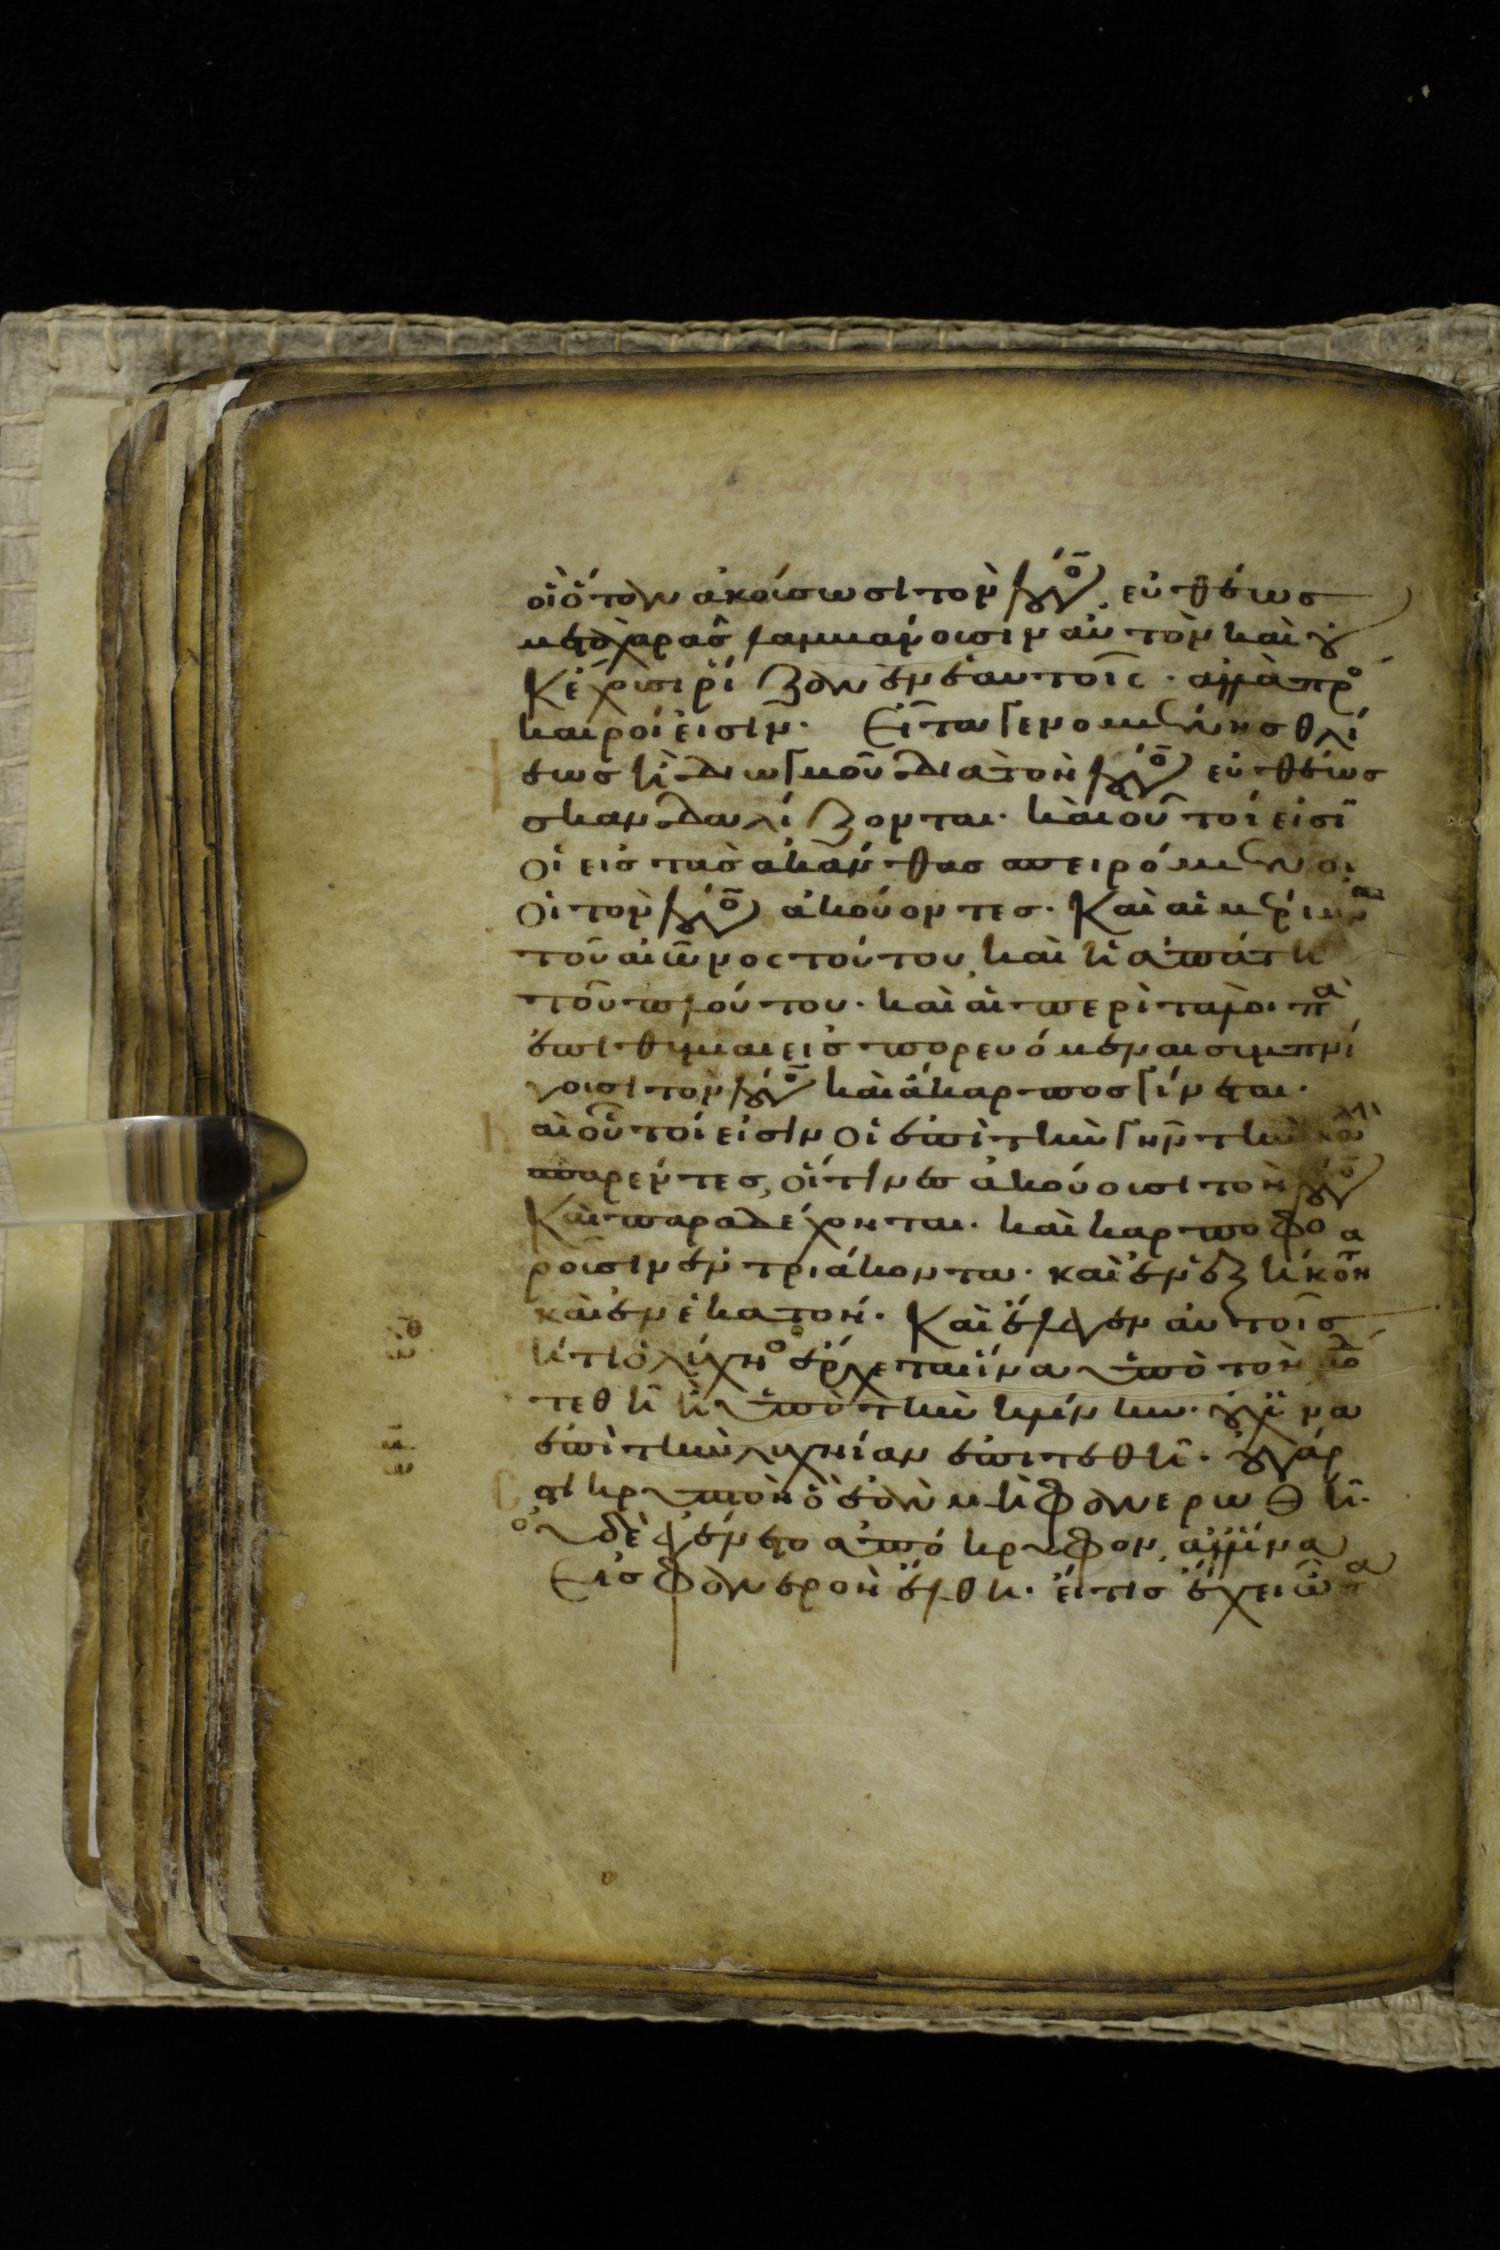 οἳ ὅταν ἀκούσωσι τὸν λόγο εὐθέως
μετὰ χαρᾶς λαμβάνουσιν αὐτὸν καὶ οὐ
Κ ἔχουσι ρί ζαν ἐν ἑαυτοῖς · ἀλλὰ προ
καιροί εἰσιν · Εἶτα γενομένης θλί
εως ἢ διωγμοῦ διὰ τὸν λόγο εὐθέως
σκανδαλίζονται · καὶ οὗτοί εἰσῖ
οἱ εἰς τὰς ἀκάνθας σπειρόμενοι
οἱ τὸν λόγο ἀκούοντες · Καὶ αἱ μέριμναι
τοῦ αἰῶνος τούτου, καὶ ἡ ἀπάτη
τοῦ πλούτου · καὶ αἱ περὶ τὰ λοιπὰ
ἐπιθυμίαι εἰσπορευόμεναι συμπνί
γουσι τὸν λόγο καὶ ἄκαρπος γίνεται ·
αὶ οὗτοί εἰσιν οἱ ἐπὶ τὴν γῆν τὴν καλὴ
σπαρέντες, οἵτινες ἀκούουσι τὸν λόγο
Καὶ παραδέχονται · καὶ καρποφο
ροῦσιν ἐν τριάκοντα · καὶ ἐν ἑξήκοντα
καὶ ἐν ἑκατόν · Καὶ ἔλεγεν αὐτοῖς
μήτι ὁ λύχνος ἔρχεται ἵνα ὑπὸ τὸν μόδ
τεθῆ ἢ ὑπὸ τὴν κλίνην · οὐχ ἵνα
ἐπὶ τὴν λυχνίαν ἐπιτεθῆ · οὐ γάρ
τι κρυπτὸν ὃ ἐὰν μὴ φανερωθῆ ·
οὐδὲ ἐγένετο ἀπόκρυφον, ἀλλ' ἵνα
Εἰς φανερὸν ἔλθη · εἴ τις ἔχει ὦτα